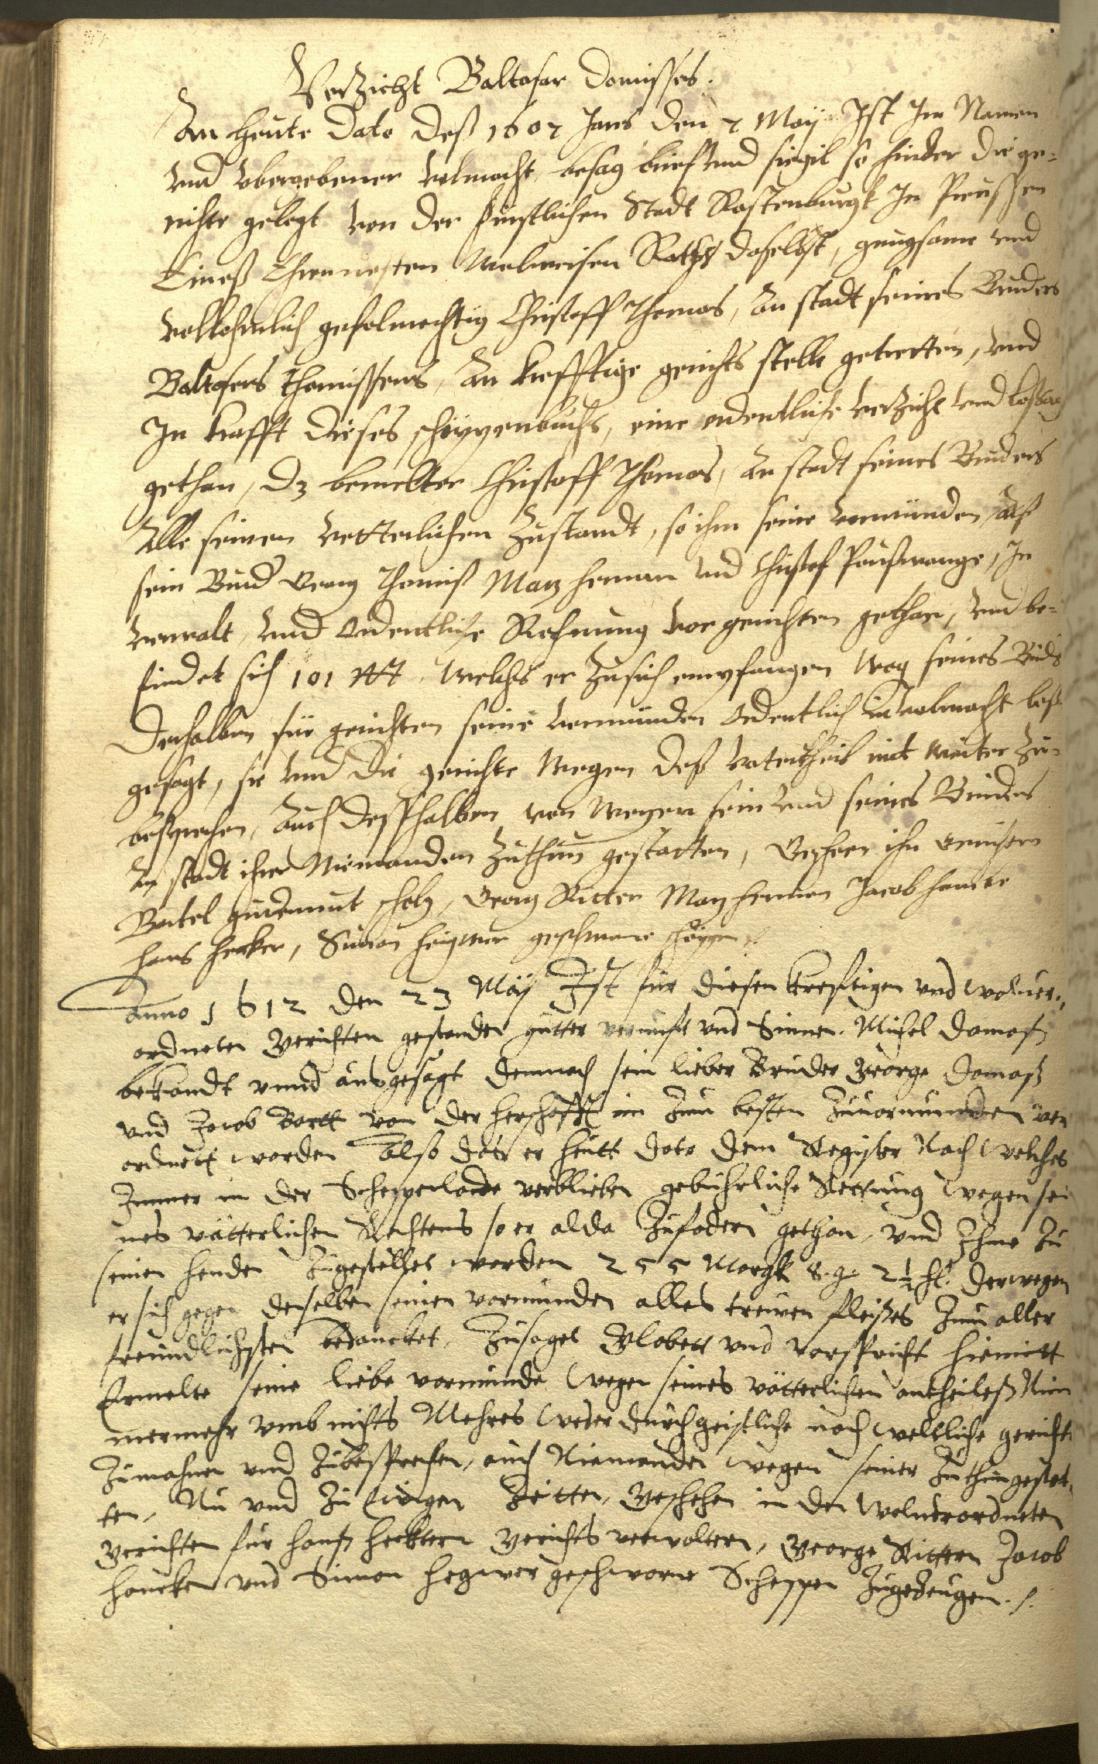 Verzicht Baltasar Domisses.
An Heute Dato deß 1607 Jars den 7 Maÿ Ist Im Namen
und ubergebener volmacht, besag brieff und siegil so hinder die ge-
richte gelegt von der Furstlichen Stadt Rastenburgk In Preussen
Eines Ehrnvesten Wolweisen Raths daselbst, gnugsame und
volkohmlich gefolmechtig Christoff Thomas, An stadt seines Bruders
Baltasers Thomissens, An krefftige gerichts stelle getretten, und
In krafft dieses schöppenbuchs, eine ordentliche verzicht und loßsag
gethan, dz bemelter Christoff Thomas, An stadt seines Bruders
Alle seinen vetterlichen Zustandt, so ihm seine vormünden, Alß
sein Brud Georg Thomiß Matz herman und Christof In
verwalt, und Ordentliche Rechnung vor gerichten gethan, und be-
findet sich 101 welches er zu sich empfangen weg seines Brud
Derhalben für gerichten seine vormünden Ordentlich in volmacht loß
gesagt, sie und die gerichte wegen deß vatertheil nicht weiter zu-
besprechen, Auch desshalben von wegen sein und seines Bruders
An stadt ihm Niemanden zuthun gestatten, Geschen ihn gerichten
Bartel scholz, Georg Ritter Matz herman Jacob
hans hecker, Simon geschworne schöppen
Anno 1612 den 23 Maÿ Ist für diesen kreftigen und woluer-
ordneten Gerichten gestanden gutter vernunft und Sinnen. Michel Domaß
bekandt unnd ausgesagt demnach sein lieber Bruder George Domaß
und Jacob Bartt von der herschafft im zum besten zuuormunden ver
ordnett worden Also dass er heutt dato dem Register Nach welches
Immer in der Schepperlade verblieben gebührliche Rechnung wegen sei
nes vätterlichen Rechtens so er alda zufodern gethan, und Ihme zu
seinen henden zugestelhet worden 255 Margk 8 g. 2½ hl. derwegen
er sich gegen denselben seinen vormunden alles treuen fleißes zum aller
freundlichsten bedancket, Zusaget Globett und vorspricht hiemitt
Ermelte seine liebe vormunde wegen seines vätterlichen antheiles Nim
mermehr umb nichts Mehres weder durch geistliche noch weltliche gericht
Zumahnen und Zubesprechen, auch Niemanden wegen seiner Zuthun gestat-
ten, Nu und Zu Ewigen Zeitten, Geschehen in den woluerordneten
Gerichten für hanß heckern Gerichts verwaltern, George Rittern Jacob
hancken und Simon geschworne Scheppen Zugezeugen ./.